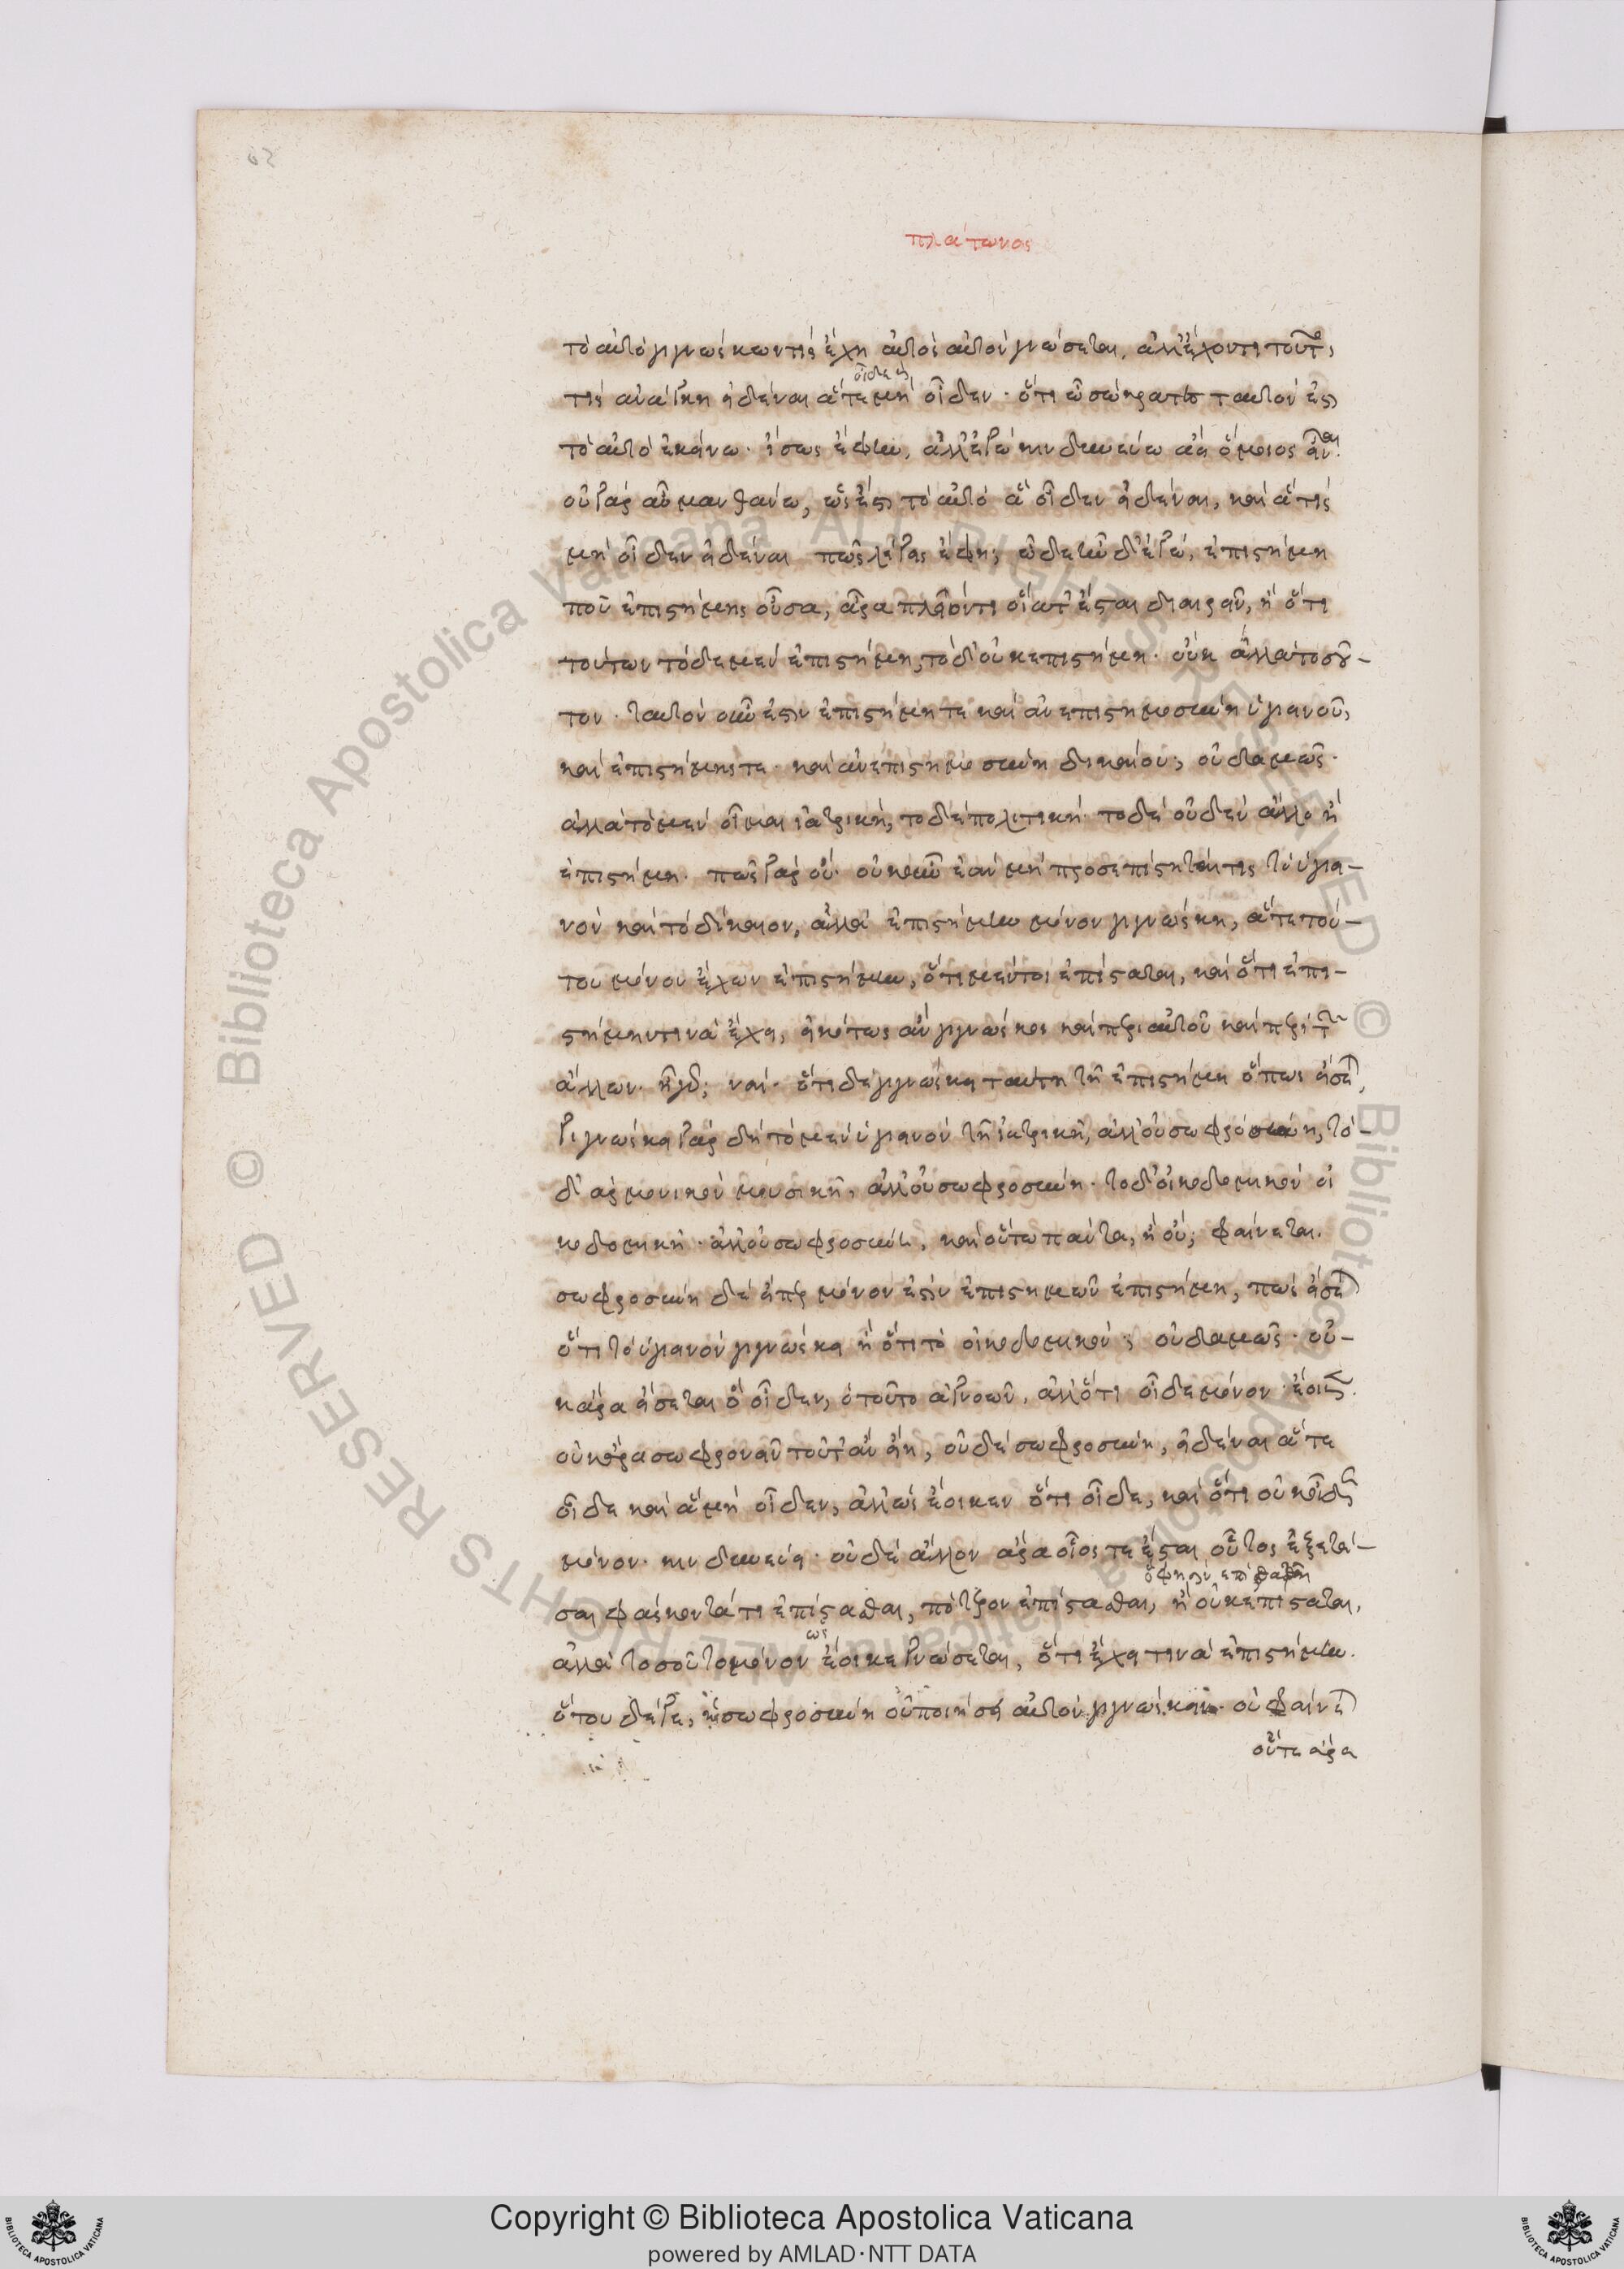 πλάτωνος
τὸ αὐτὸ γιγνώσκων τίς ἔχη αὐτὸς αὑτὸν γνώσεται, ἀλλ' ἔχοντι τοῦτο,
τίς ἀνάγκη εἰδέναι ἅ τε μὴ οἶδεν· ὅτι ὦ σώκρατες ταυτόν ἐστι
οἶδεν
τὸ αὐτὸ ἐκείνω· ἴσως ἔφην, ἀλλ' ἐγὼ κινδυνεύω ἀεὶ ὅμοιος εἶναι·
οὐ γὰρ αὖ μανθάνω, ὡς ἔστι τὸ αὐτὸ ἃ οἶδεν εἰδέναι, καὶ ἅ τις
μὴ οἶδεν εἰδέναι πῶς λέγεις ἔφη; ὧδε ἦν δ' ἐγώ, ἐπιστήμη
που ἐπιστήμης οὖσα, ἆρα πλεῖόν τι οἵα τ' ἔσται διαιρεῖν, ἢ ὅτι
τούτων τόδε μὲν ἐπιστήμη, τὸ δ' οὐκ ἐπιστήμη· οὐκ ἀλλὰ τοσοῦ-
τον· ταυτὸν οὖν ἐστιν ἐπιστήμη τε καὶ ἀνεπιστημοσύνη ὑγιεινοῦ,
καὶ ἐπιστήμη τε· καὶ ἀνεπιστημοσύνη δικαίου; οὐδαμῶς·
ἀλλὰ τὸ μὲν οἶμαι ἰατρική, τὸ δὲ πολιτική· τὸ δὲ οὐδὲν ἄλλο ἢ
ἐπιστήμη. πῶς γὰρ οὔ· οὐκοῦν ἐὰν μὴ προσεπίστηταί τις τὸ ὑγιει-
νὸν καὶ τὸ δίκαιον, ἀλλὰ ἐπιστήμην μόνον γιγνώσκη, ἅτε τού-
του μόνον ἔχων ἐπιστήμην, ὅτι μέντοι ἐπίσταται, καὶ ὅτι ἐπι-
στήμην τινὰ ἔχει, εἰκότως ἂν γιγνώσκοι καὶ περὶ αὑτοῦ καὶ περὶ τῶν
ἄλλων· ἦ γάρ; ναί· ὅτι δὲ γιγνώσκει ταύτη τῆ ἐπιστήμη ὅπως εἴσεται,
γιγνώσκει γὰρ δὴ τὸ μὲν ὑγιεινὸν τῆ ἰατρικῆ, ἀλλ' οὐ σωφροσύνη, τὸ
δ' ἁρμονικὸν μουσικῆ, ἀλλ' οὐ σωφροσύνη· τὸ δ' οἰκοδομικὸν οἰ
κοδομικῆ· ἀλλ' οὐ σωφροσύνη, καὶ οὕτω πάντα, ἢ οὔ; φαίνεται.
σωφροσύνη δὲ εἴπερ μόνον ἐστὶν ἐπιστημῶν ἐπιστήμη, πῶς εἴσεται
ὅτι τὸ ὑγιεινὸν γιγνώσκει ἢ ὅτι τὸ οἰκοδομικόν; οὐδαμῶς· οὐ-
κ ἄρα εἴσεται ὃ οἶδεν, ὁ τοῦτο ἀγνοῶν, ἀλλ' ὅτι οἶδε μόνον· ἔοικεν.
οὐκ ἄρα σωφρονεῖν τοῦτ' ἂν εἴη, οὐδὲ σωφροσύνη, εἰδέναι ἅ τε
οἶδε καὶ ἃ μὴ οἶδεν, ἀλλ' ὡς ἔοικεν ὅτι οἶδε, καὶ ὅτι οὐκ οἶδεν
μόνον· κινδυνεύει· οὐδὲ ἄλλον ἄρα οἷός τε ἔσται οὗτος ἐξετά-
σαι φάσκοντά τι ἐπίστασθαι, πότερον ἐπίσταται, ἢ οὐκ ἐπίσταται,
ἀλλὰ τοσοῦτο μόνον ἔοικε γνώσεται, ὅτι ἔχει τινὰ ἐπιστήμην.
ὡς
ὅτου δέ γε, ἡ σωφροσύνη οὐ ποιήσει αὐτὸν γιγνώσκειν· οὐ φαίνεται
οὔτε ἄρα